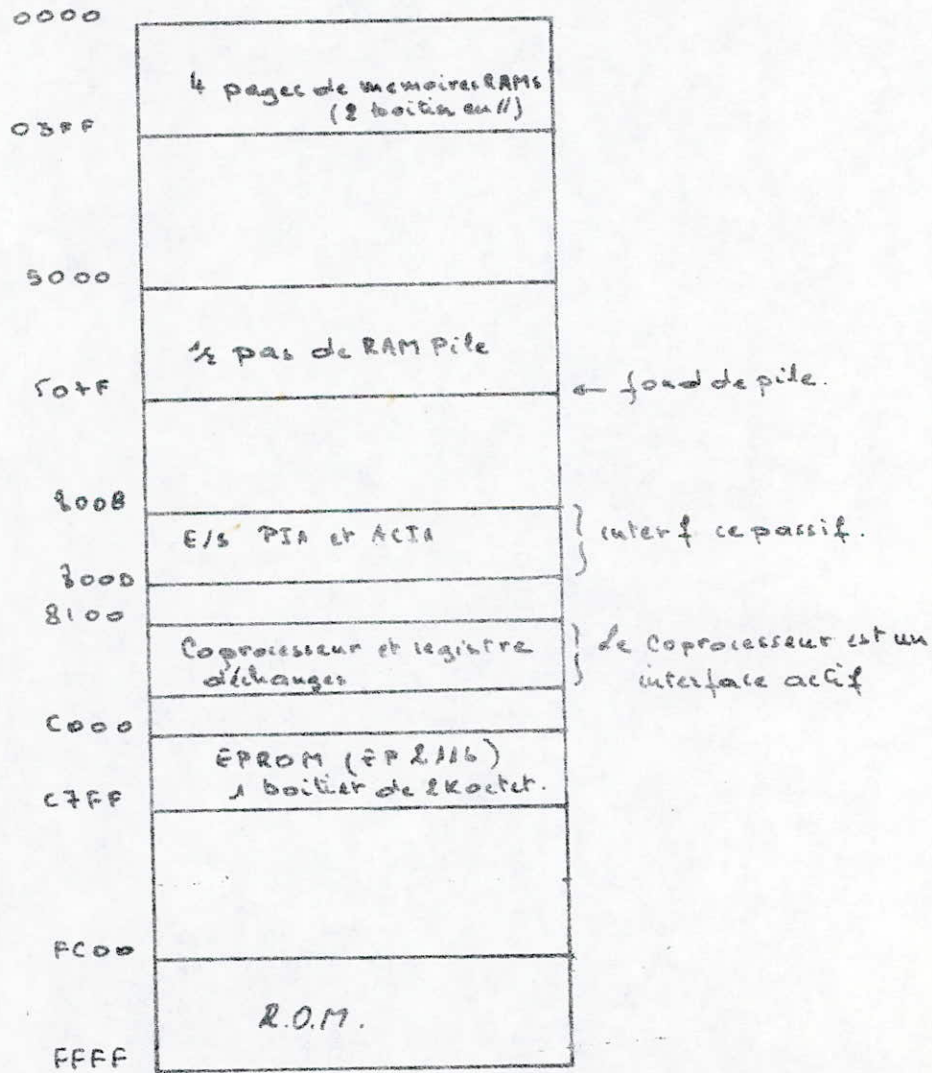 0000
4 pages de memoires RAMs
(2 boitier en //)
03FF
5000
1/2 pas de RAM Pile
507F
← fond de pile.
8008
E/S PIA et ACIA
interf ce passif.
800D
8100
Coprocesseur et registre
déchanges
Le Coprocesseur est un
interface actif
C000
EPROM (EP 2116)
1 boitier de 2Koctet.
C7FF
FC00
R.O.M.
FFFF